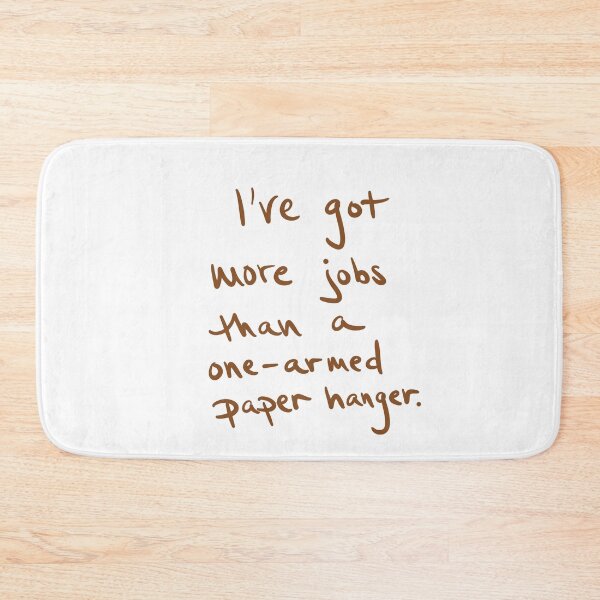 I've got
more jobs
than a
one-armed
paper hanger.